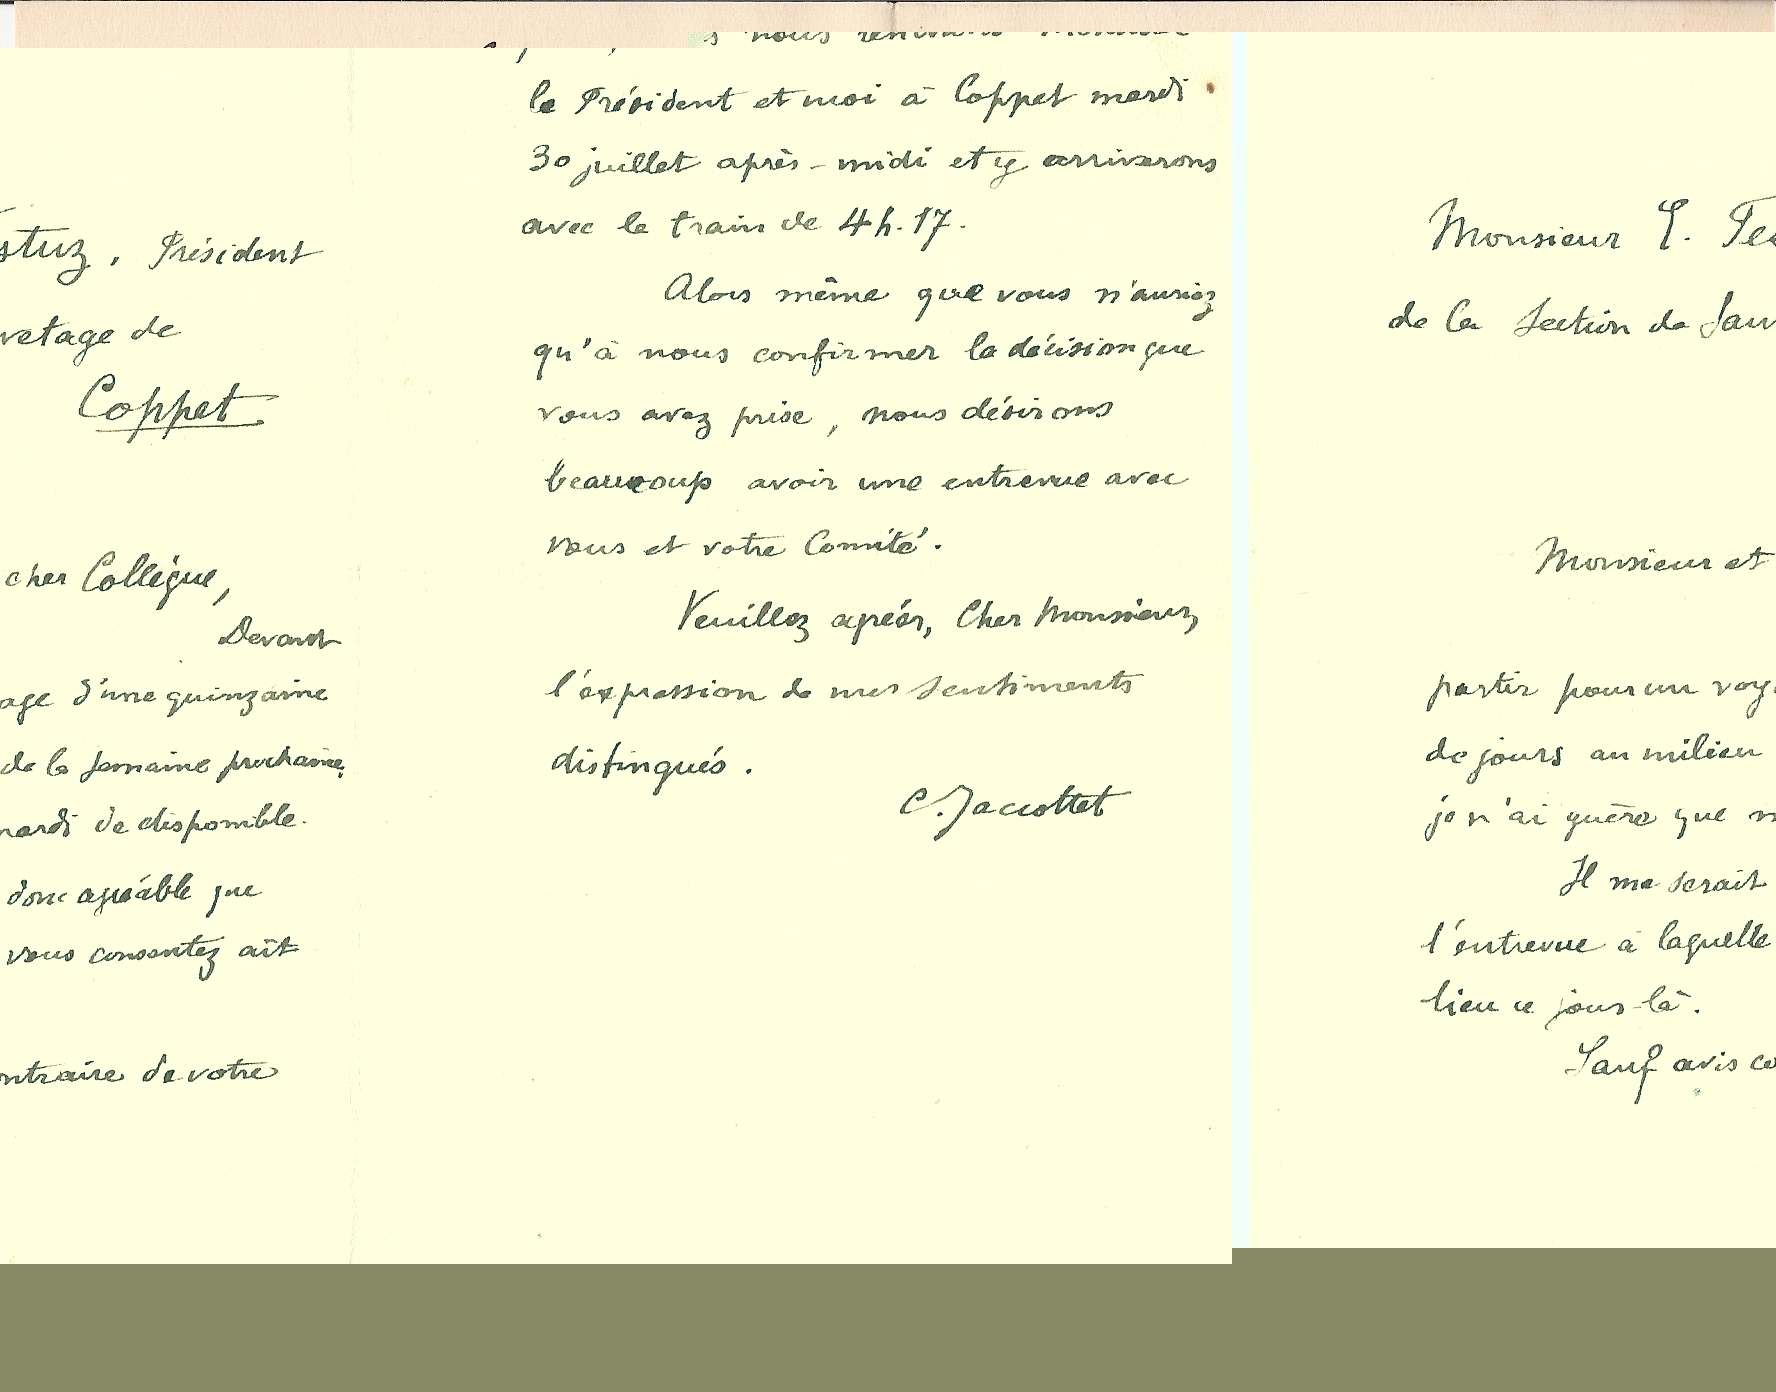 stuz, Président
vetage de
Coppet
cher Collègue,
Devant
age d'une quinzaine
de la semaine prochaine,
mardi de disponible.
donc agréable que
vous consentez ait
ontraire de votre
nous rendrons Monsieur
le Président et moi à Coppet mardi
30 juillet après-midi et y arriverons
avec le train de 4h.17.
Alors même que vous n'auriez
qu'à nous confirmer la décision que
vous avez prise, nous désirons
beaucoup avoir une entrevue avec
vous et votre Comité.
Veuillez agréer, Cher Monsieur,
l'expression de mes sentiments
distingués.
C. Jaccottet
Monsieur E. Tes
de la Section de Sauv
Monsieur et
partir pour un voya
de jours au milieu
je n'ai guère que m
Il me serait
l'entrevue à laquelle
lieu ce jour-là.
Sauf avis co